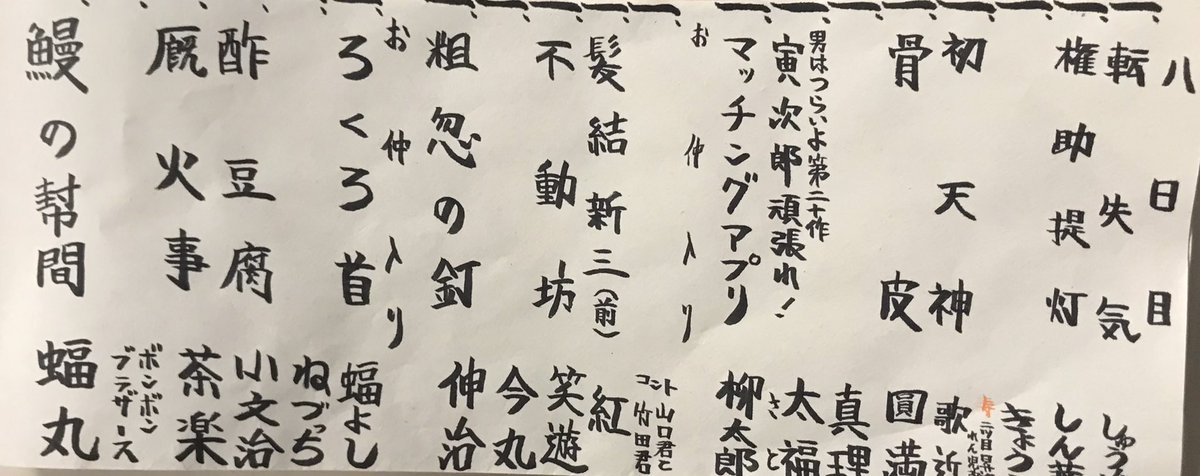 八日目
転失気 しゅう
権助提灯 しん
きょう
初天神 歌
骨皮 圓満
真理
男はつらいよ第二十作
寅次郎頑張れ! 太福
さと
マッチングアプリ 柳太郎
お仲入り
コント 山口君と
竹田君
髪結新三(前) 紅
不動坊 笑遊
今丸
粗忽の釘 伸治
お仲入り
ろくろ首 蝠よし
ねづっち
酢豆腐 小文治
厩火事 茶楽
ボンボン
ブラザース
鰻の幇間 蝠丸